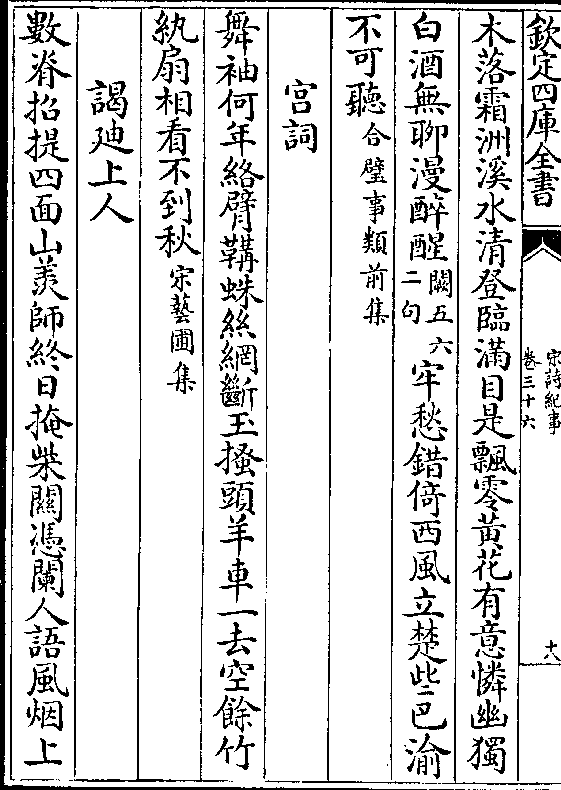 欽定四庫全書
宋詩紀事
卷三十六
十八
木落霜洲溪水清登臨滿目是飄零黃花有意憐幽獨
白酒無聊漫醉醒闕五六二句牢愁錯倚西風立楚些巴渝
不可聽合璧事類前集
宫詞
舞袖何年絡臂鞲蛛絲網斷玉搔頭羊車一去空餘竹
紈扇相看不到秋宋藝圃集
謁廸上人
數脊招提四面山羡師終日掩柴關憑闌人語風烟上